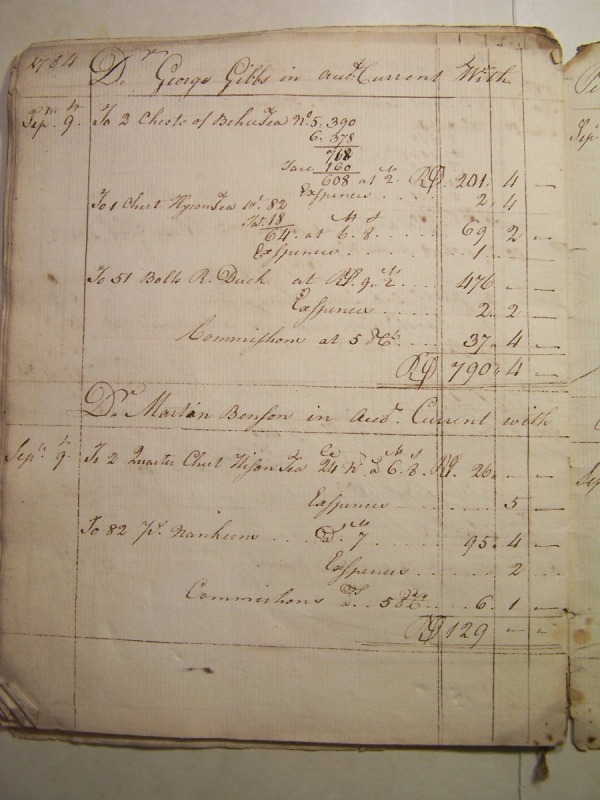 1784 Dr. George Gibbs in Acct. Current With
Sepr. 9. To 2 Chests of Bohea Tea No 5. 390
6. 378
768
Tare 160
608 at 2 M RD. 201. 4 —
Expences . . . . 2. 4
To 1 Chest Hyson Tea Wt. 82
Tat. 18
64. at 6. 8. M s . . . . 69. 2 —
Expences . . . . 1. —
To 51 Bolts R. Duck at RD. 9. 2. M . . . . 476. — —
Expences . . . . 2. 2 —
Commissions at 5 . . . . 37. 4 —
RD 790. 4 —
Dr. Martin Benson in Acct. Current with
Sepr. 9. To 2 Quarter Chest Hison Tea 24 a 6. 8. M s RD. 26. — —
Expences . . . . 5 —
To 82 Ps. Nankeens . . . . 7 M . . . . 95. 4 —
Expences . . . . 2 . . .
Commissions 5 . . . . 6. 1 —
RD 129 — —
Sep